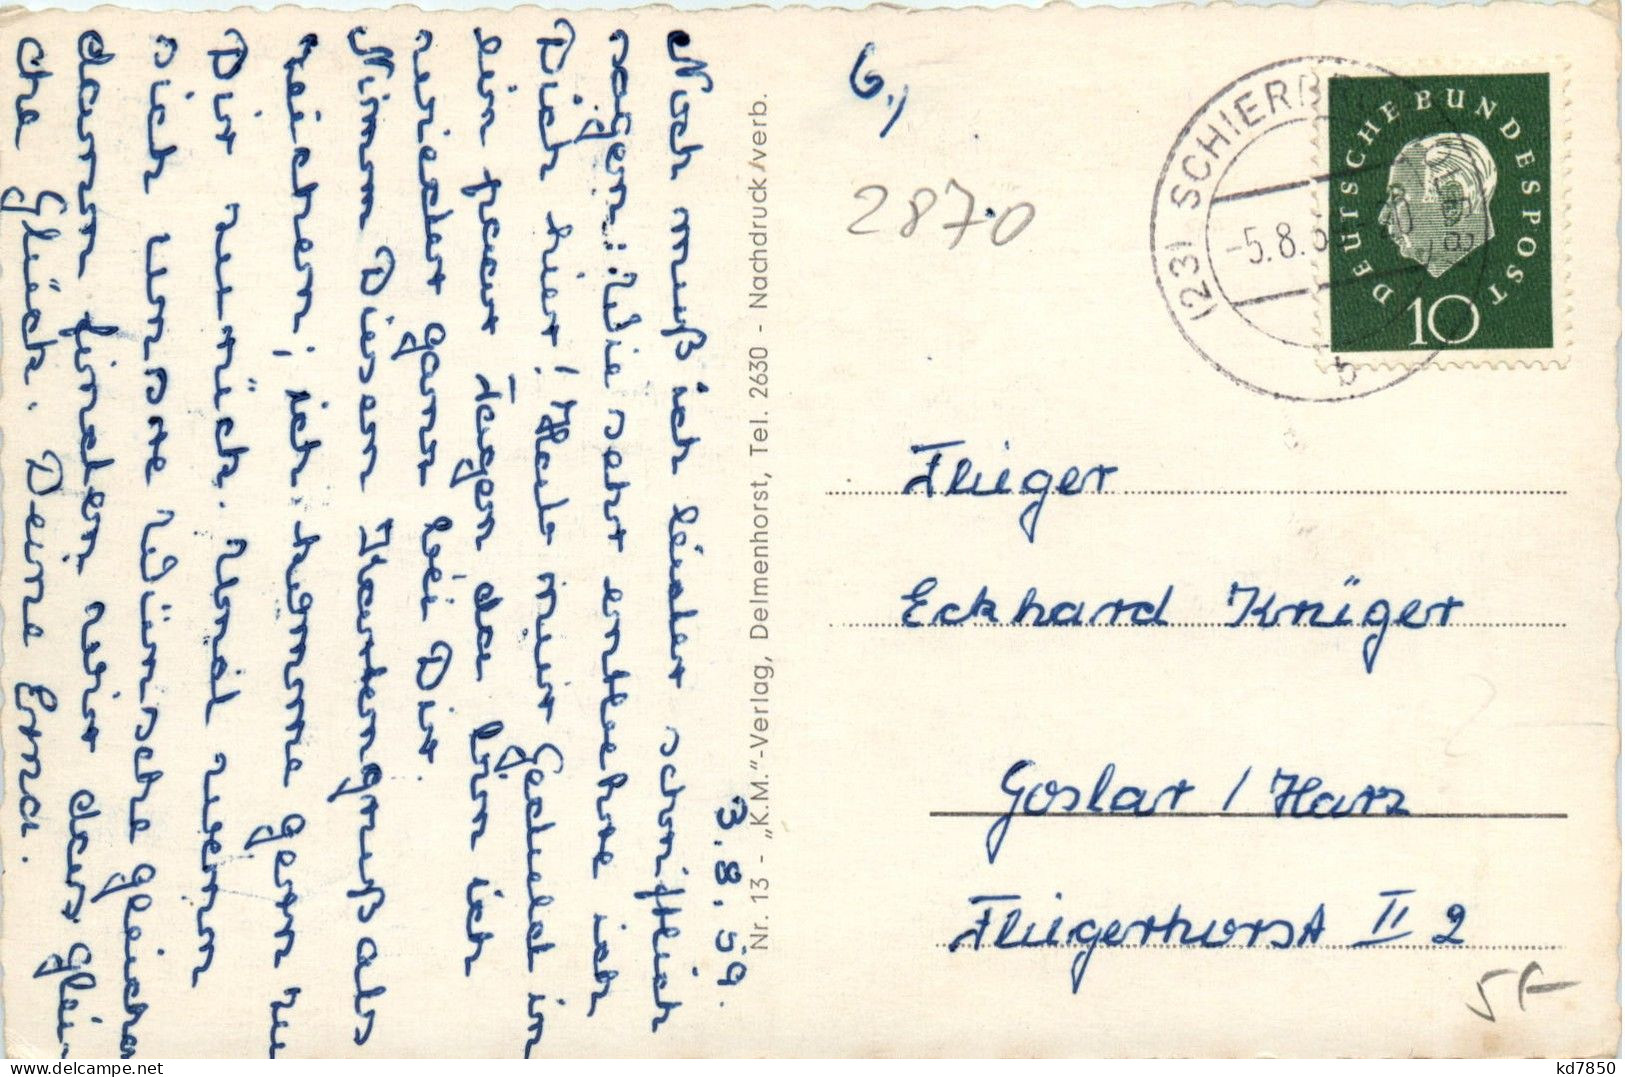 3.8.59.
Noch muß ich leider schriftlich
sagen: Wie sehr entbehre ich
Dich hier! Hab nur Geduld in
ein paar Tagen da bin ich
wieder ganz bei Dir.
Nimm Diesen Kartengruß als
Zeichen; ich komme gern zu
Dir zurück. Und wenn
sich unsre Wünsche gleichen
dann finden wir das glei-
che Glück. Deine Erna.
Nr. 13 - „K.M."-Verlag, Delmenhorst, Tel. 2630 - Nachdruck/verb.
6.)
2870
(23) SCHIER
-5.8.
20
b
DEUTSCHE BUNDESPOST
10
Flieger
Eckhard Krüger
Goslar / Harz
Fliegerhorst II 2
kd7850